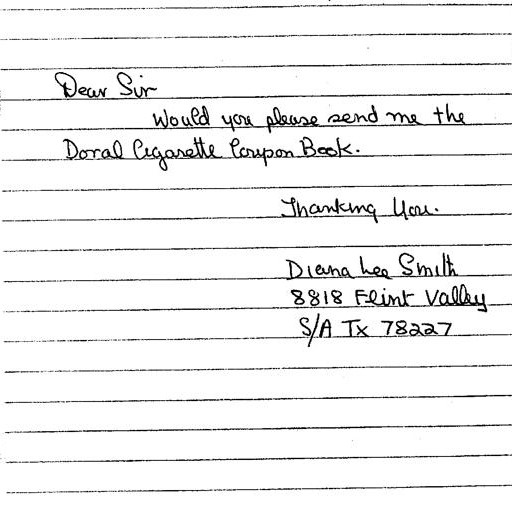 Dear Sir
Would you please send me the
Doral Cigarette Coupon Book.
Thanking You.
Diana Lee Smith
8818 Flint Valley
S/A Tx 78227